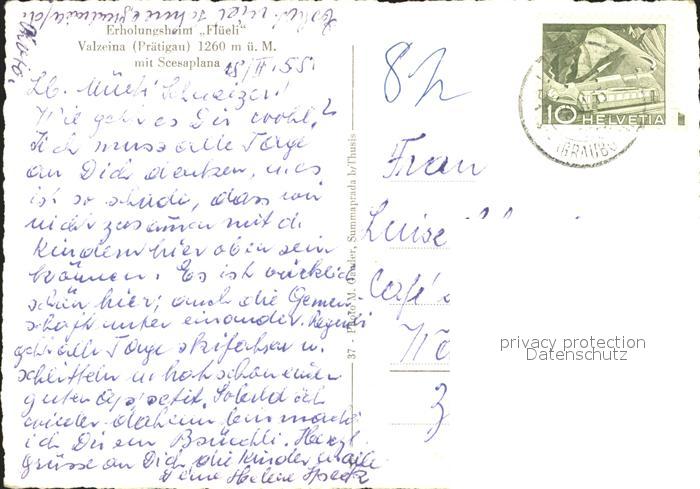 Erholungsheim „Flüeli"
Valzeina (Prätigau) 1260 m ü. M.
mit Scesaplana
18/II 55.
Lb. Müeti Schweizer!
Wie geht es Dir wohl?
Ich muss alle Tage
an Dich denken, u. es
ist so schade, dass wir
nicht zusammen mit d.
Kindern hier oben sein
können. Es ist wirklich
schön hier; auch die Gemein-
schaft untereinander.
geht alle Tage skifahren u.
schlitteln u. hat schon einen
guten Appetit. Sobald ich
wieder daheim bin mach
ich Dir ein Bsüechli. Herzl.
Grüsse an Dich, die Kinder
Deine Helene
37 - Photo M. Gander, Summaprada b/Thusis
10 HELVETIA
Frau
Luise
Café
privacy protection
Datenschutz